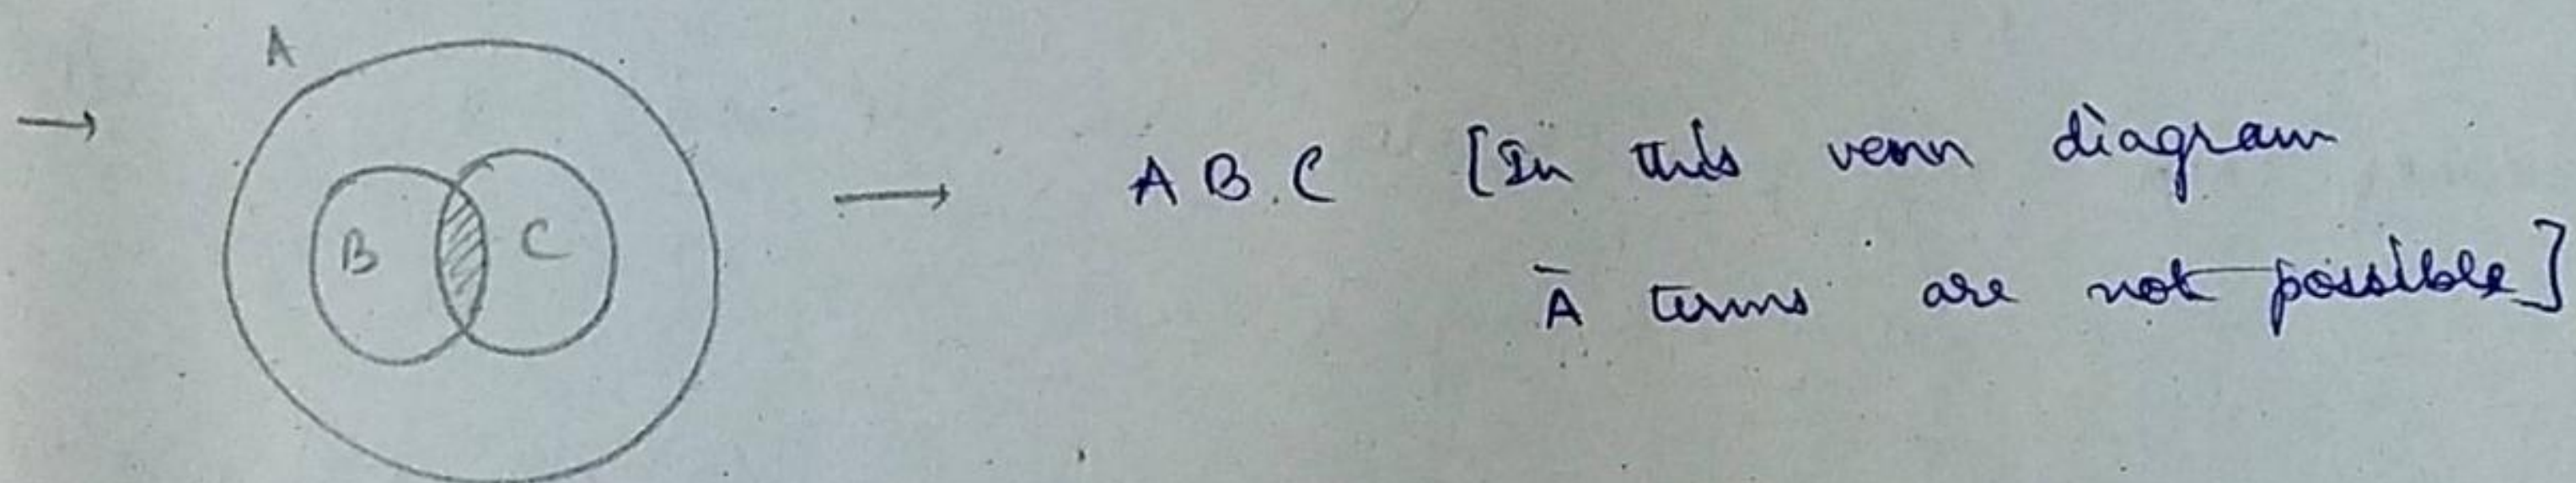 A
B C
→ → A B.C [In this venn diagram
Ā terms are not possible]